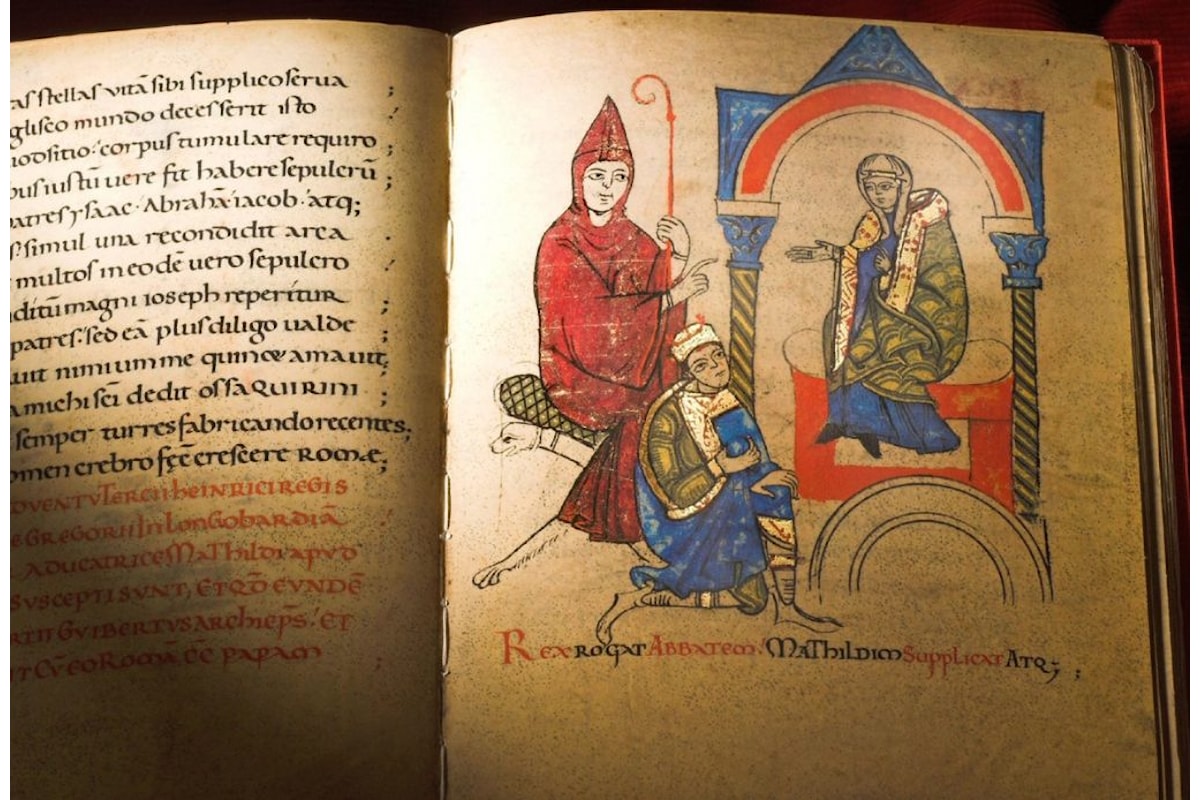 as stellas vitā sibi supplico serua ;
gliseo mundo decesserit isto
positio: corpus tumulare requiro ;
pus iustū uere fit habere sepulcrū ;
patres ysaac · Abrahā iacob · atq;
simul una recondidit arca .
multos in eodē uero sepulcro
ditū magni ioseph reperitur ;
patres · sed eā plus diligo ualde
uit nimium me quinoe amauit ;
a michi sei dedit ossa QUIRINI ;
semper turres fabricando recentes .
omen crebro fecē crescere ROMĘ ;
DVENTV TERCII HEINRICI REGIS
E GREGORII IN LONGOBARDIĀ
A DUCATRICE MATHILDI APVD
SVSCEPTI SVNT, ET QD EVNDĒ
RTII GVIBERTVS ARCHIEPS: ET
IT CV EO ROMĀ, CĒ PAPAM ;
REX ROGAT ABBATEM: MATHILDIM SUPPLICAT ATQ; ;